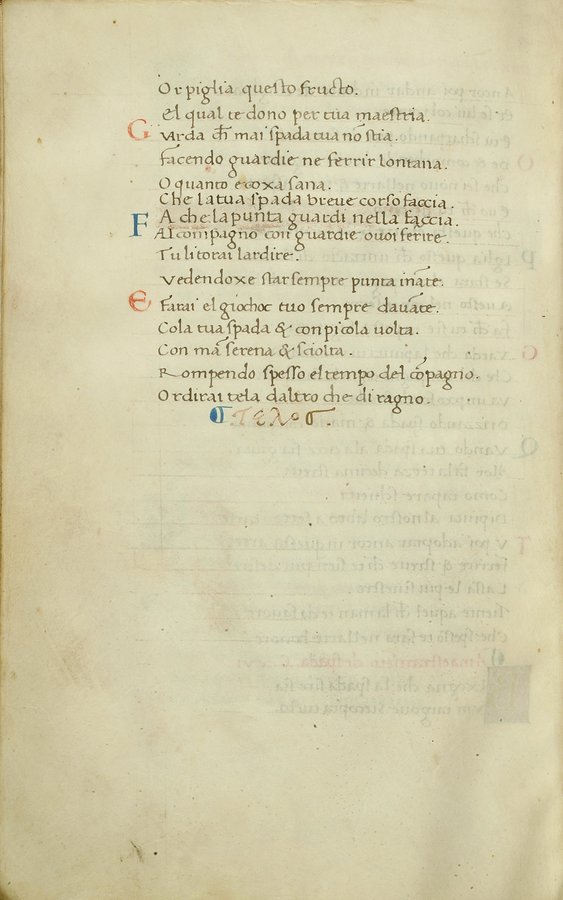 Or piglia questo fructo.
El qual te dono per tua maestria.
GUarda ch̅ mai spada tua no̅ stia.
facendo guardie ne ferrir lontana.
O quanto e coxa sana.
Che la tua spada breve corso faccia.
FA che la punta guardi nella faccia.
Al compagno con guardie o uoi ferire.
Tu li torai lardire.
Vedendoxe star sempre punta ina̅te.
E Farai el giochoc tuo sempre dava̅te.
Cola tua spada & con picola uolta.
Con ma̅ serena & sciolta.
Rompendo spesso el tempo del co̅pagno.
Ordirai tela daltro che di ragno.
τελοσ.